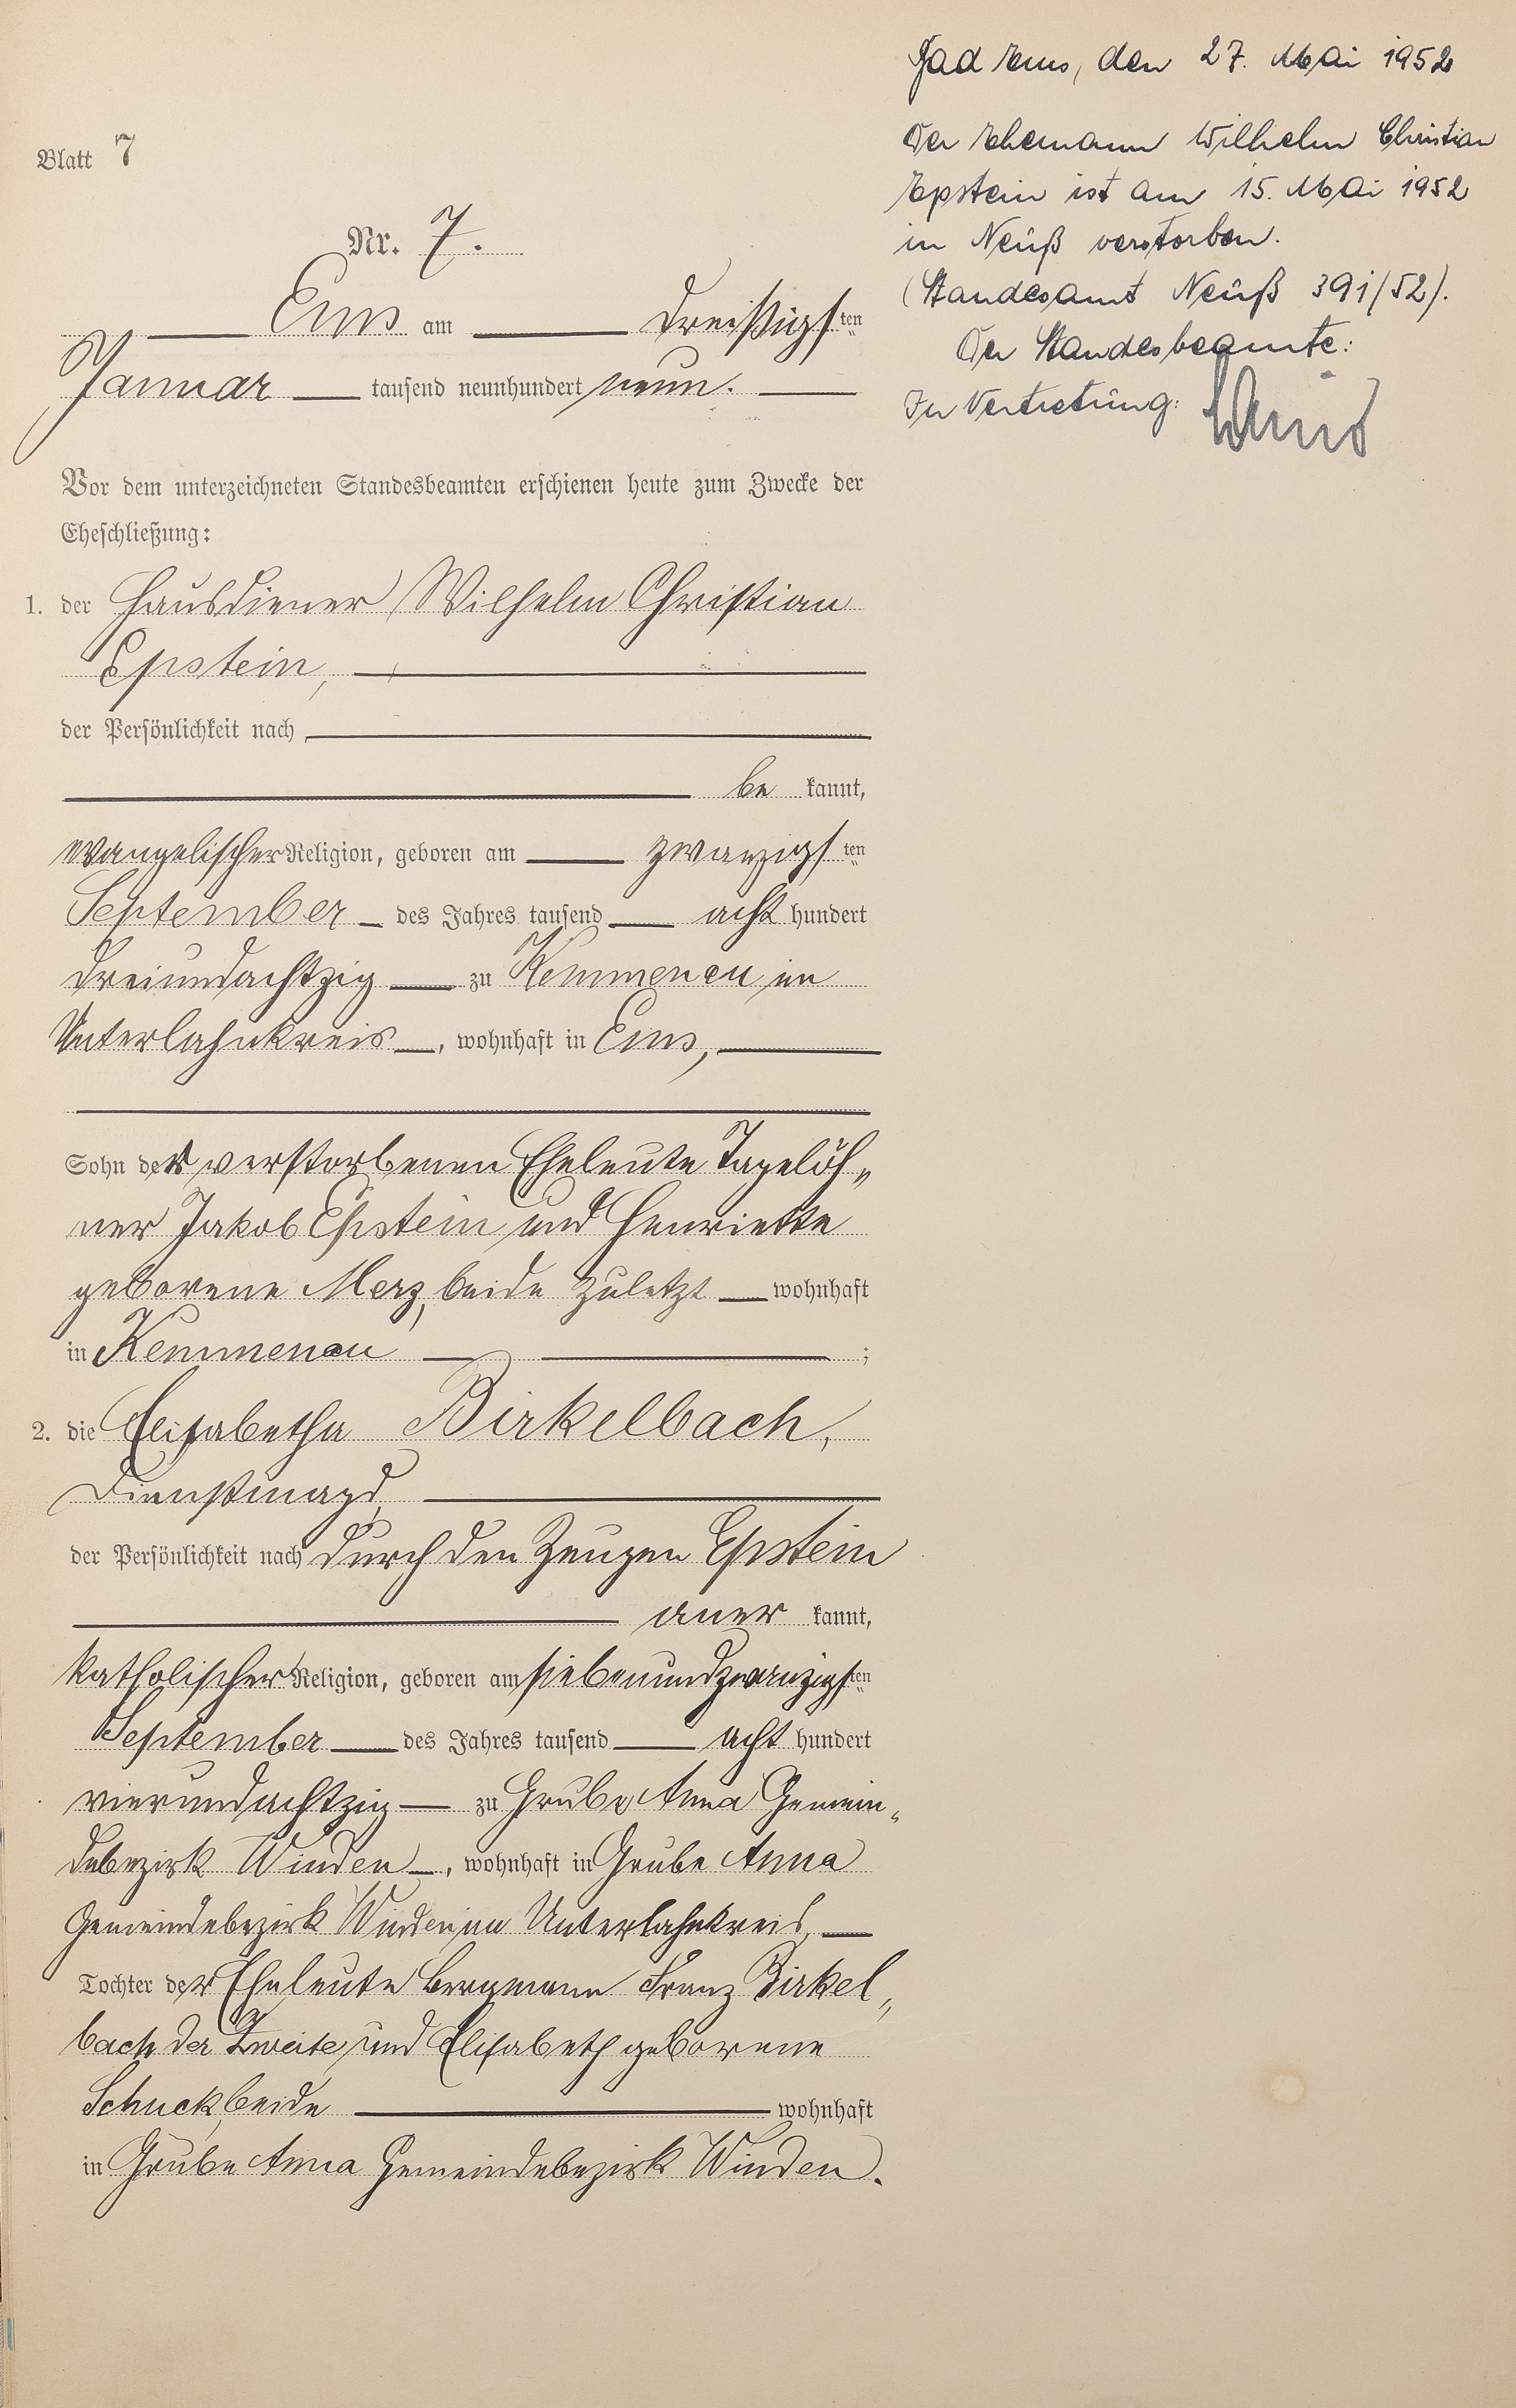 Blatt 7
Nr. 7.
Ems am dreißigsten
Januar tausend neunhundert neun.
Vor dem unterzeichneten Standesbeamten erschienen heute zum Zwecke der
Eheschließung:
1. der Hausdiener Wilhelm Christian
Epstein,
der Persönlichkeit nach
be kannt,
evangelischer Religion, geboren am zwanzigsten
September des Jahres tausend acht hundert
dreiundachtzig zu Kemmenau im
Unterlahnkreis, wohnhaft in Ems,
Sohn der verstorbenen Eheleute Tagelöh„
ner Jakob Epstein und Henriette
geborene Merz, beide zuletzt wohnhaft
in Kemmenau ;
2. die Elisabetha Birkelbach,
Dienstmagd,
der Persönlichkeit nach durch den Zeugen Epstein
aner kannt,
katholischer Religion, geboren am siebenundzwanzigsten
September des Jahres tausend acht hundert
vierundachtzig zu Grube Anna Gemein„
debezirk Winden, wohnhaft in Grube Anna
Gemeindebezirk Winden im Unterlahnkreis,
Tochter der Eheleute Bergmann Franz Birkel„
bach der Zweite und Elisabeth geborene
Schuck, beide wohnhaft
in Grube Anna Gemeindebezirk Winden.
Bad Ems, den 27. Mai 1952
Der Ehemann Wilhelm Christian
Epstein ist am 15. Mai 1952
in Neuß verstorben.
(Standesamt Neuß 391/52).
Der Standesbeamte:
In Vertretung: